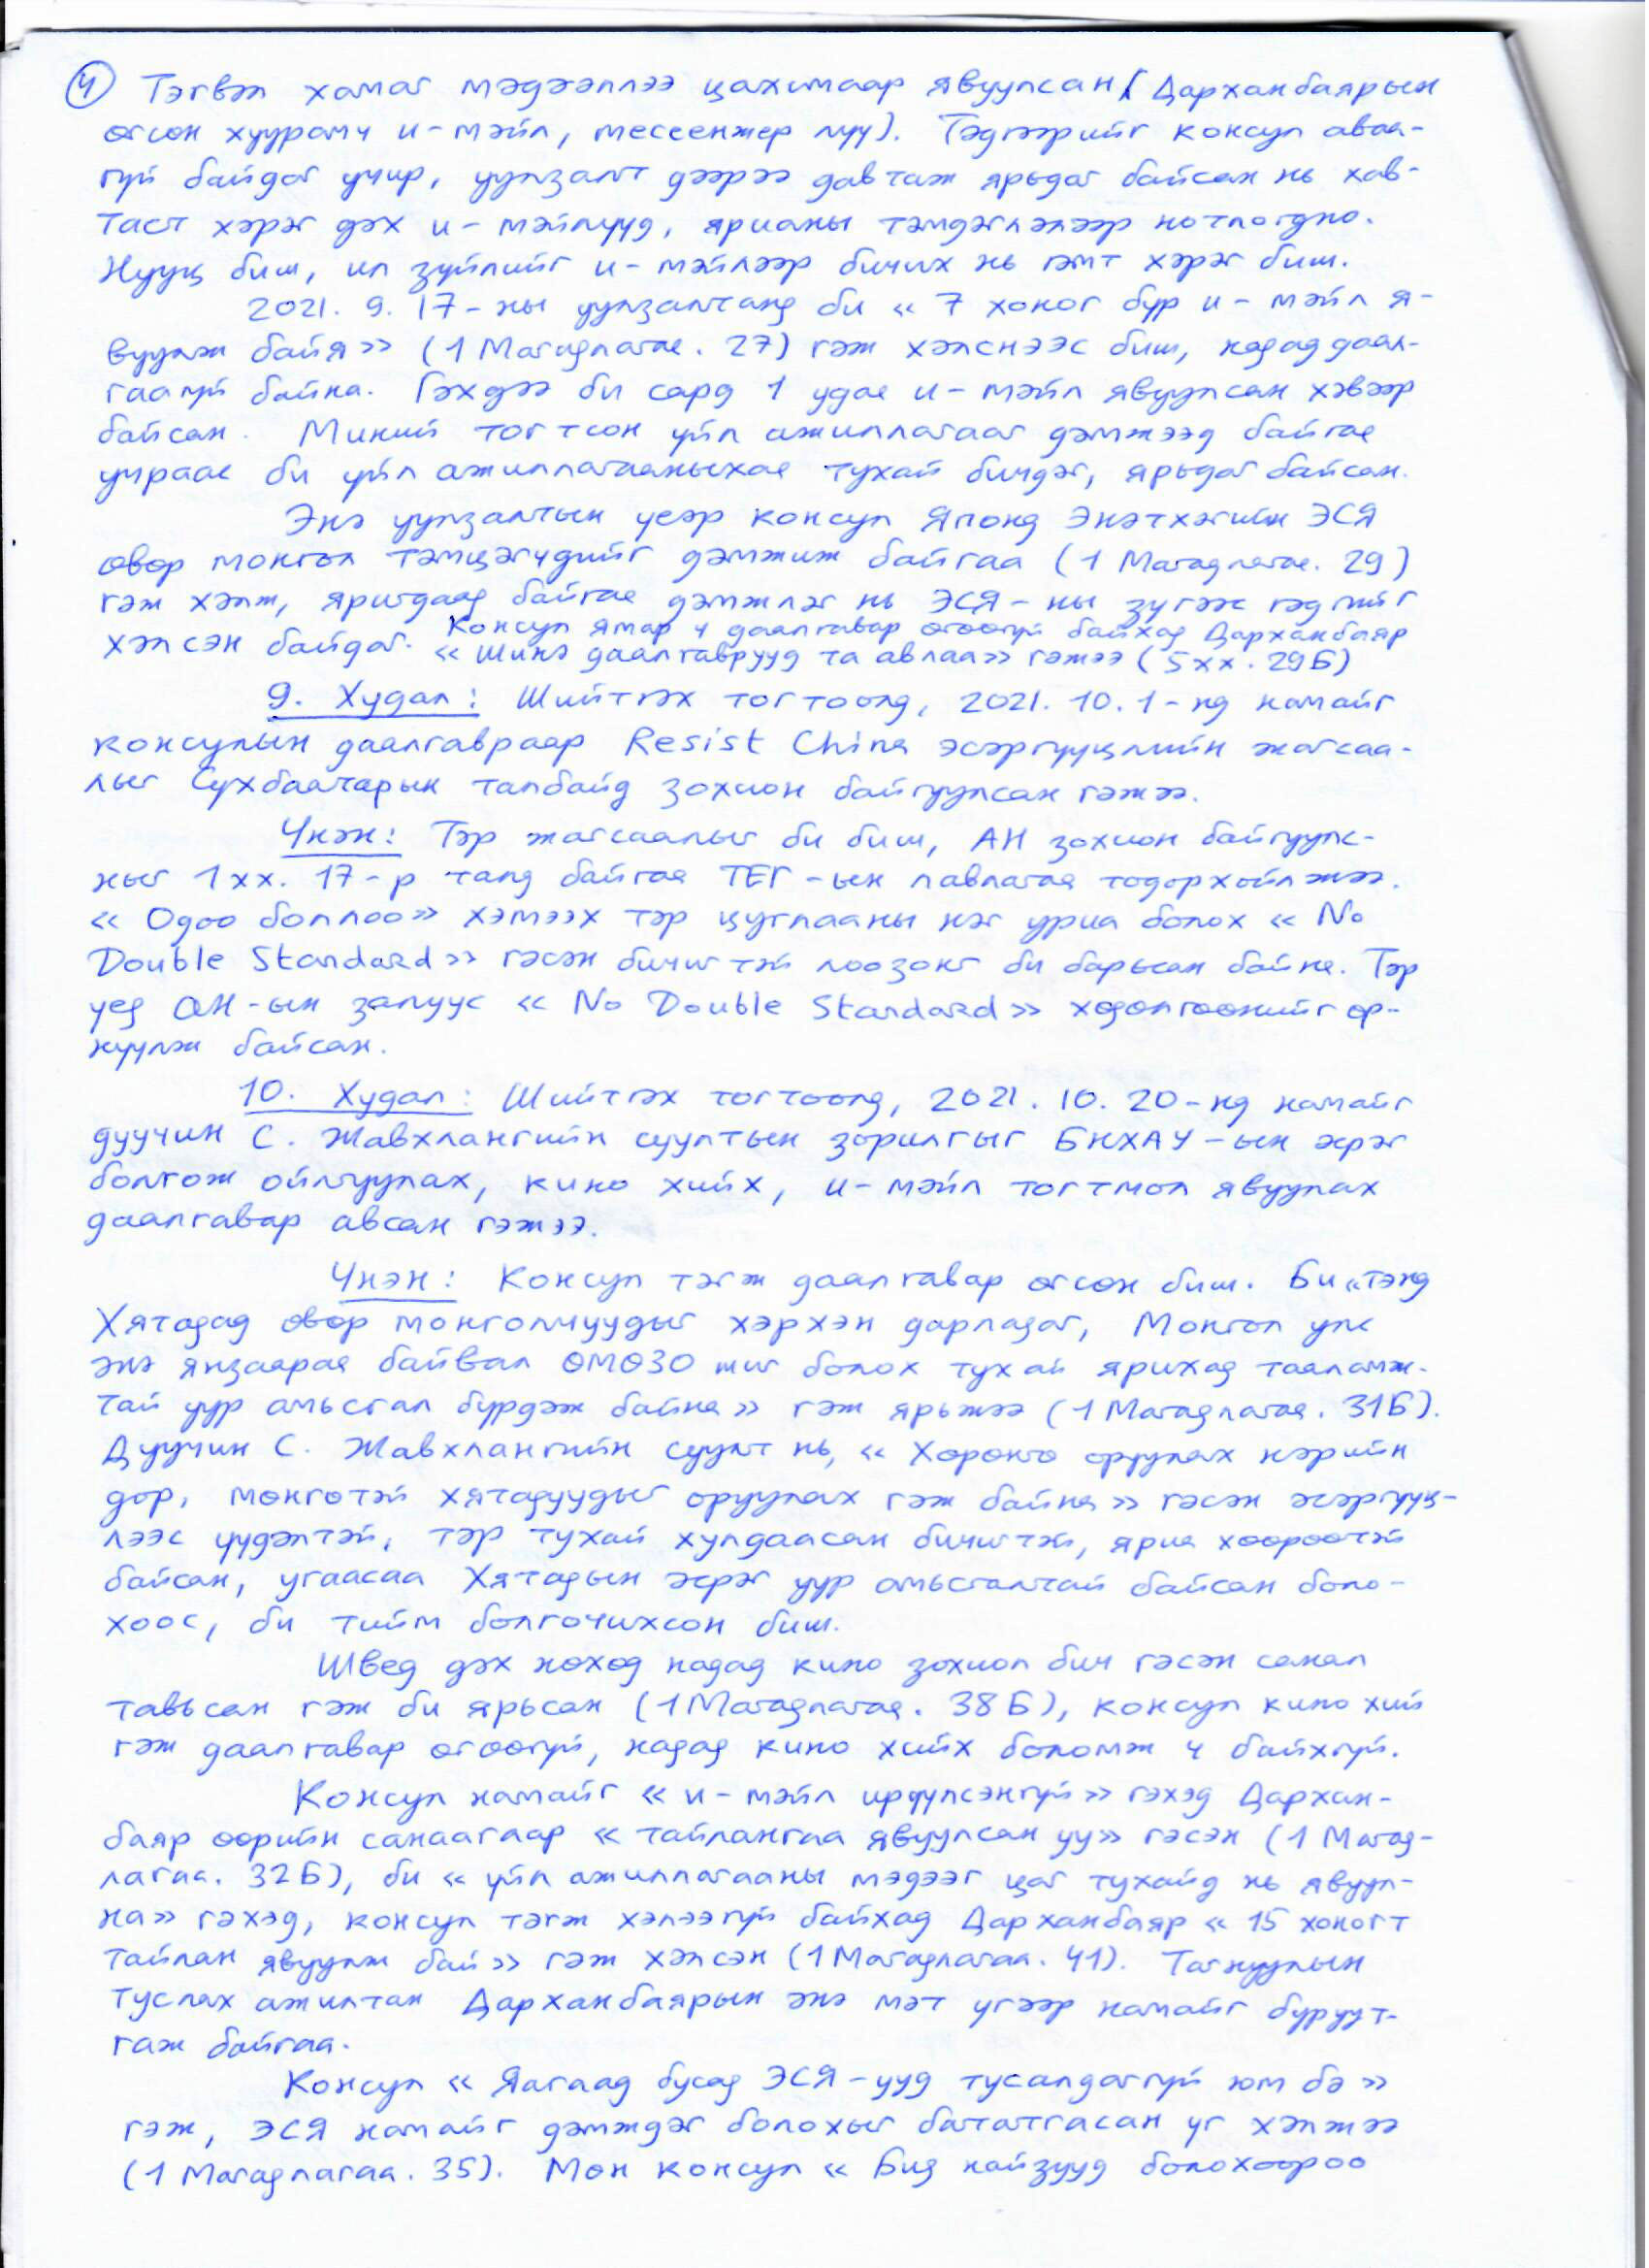 4 Тэгвэл хамаг мэдээллээ цахимаар явуулсан (Дарханбаярын
өгсөн хуурамч и-мэйл, мессенжер луу). Тэдгээрийг консул аваа-
гүй байдаг учир, уулзалт дээрээ давтаж ярьдаг байсан нь хав-
таст хэрэг дэх и-мэйлүүд, ярианы тэмдэглэлээр нотлогдно.
Нууц биш, ил зүйлийг и-мэйлээр бичих нь гэмт хэрэг биш.
2021. 9. 17-ны уулзалтанд би «7 хоног бүр и-мэйл я-
вуулж байя» (1 Магадлагаа. 27) гэж хэлснээс биш, надад даал-
гаагүй байна. Гэхдээ би сард 1 удаа и-мэйл явуулсан хэвээр
байсан. Миний тогтсон үйл ажиллагааг дэмжээд байгаа
учраас би үйл ажиллагааныхаа тухай бичдэг, ярьдаг байсан.
Энэ уулзалтын үеэр консул Японд Энэтхэгийн ЭСЯ
өвөр монгол тэмцэгчдийг дэмжиж байгаа (1 Магадлагаа. 29)
гэж хэлж, яригдаад байгаа дэмжлэг нь ЭСЯ-ны зүгээс гэдгийг
хэлсэн байдаг. Консул ямар ч даалгавар өгөөгүй байхад Дарханбаяр
«Шинэ даалгаврууд та авлаа» гэжээ (5хх. 29Б)
9. Худал: Шийтгэх тогтоолд, 2021. 10. 1-нд намайг
консулын даалгавраар Resist China эсэргүүцлийн жагсаа-
лыг Сүхбаатарын талбайд зохион байгуулсан гэжээ.
Үнэн: Тэр жагсаалыг би биш, АН зохион байгуулс-
ныг 1хх. 17-р талд байгаа ТЕГ-ын лавлагаа тодорхойлжээ.
«Одоо боллоо» хэмээх тэр цуглааны нэг уриа болох «No
Double Standard» гэсэн бичигтэй лоозонг би барьсан байна. Тэр
үед АН-ын залуус «No Double Standard» хөдөлгөөнийг өр-
нүүлж байсан.
10. Худал: Шийтгэх тогтоолд, 2021. 10. 20-нд намайг
дуучин С. Жавхлангийн суултын зорилгыг БНХАУ-ын эсрэг
болгож ойлгуулах, кино хийх, и-мэйл тогтмол явуулах
даалгавар авсан гэжээ.
Үнэн: Консул тэгж даалгавар өгсөн биш. Би «тэнд
Хятадад өвөр монголчуудыг хэрхэн дарладаг, Монгол улс
энэ янзаараа байвал ӨМӨЗО шиг болох тухай ярихад тааламж-
тай уур амьсгал бүрдэж байна» гэж ярьжээ (1 Магадлагаа. 31Б).
Дуучин С. Жавхлангийн суулт нь, «Хөрөнгө оруулах нэрийн
дор, мөнгөтэй хятадуудыг оруулах гэж байна» гэсэн эсэргүүц-
лээс үүдэлтэй, тэр тухай хулдаасан бичигтэй, яриа хөөрөөтэй
байсан, угаасаа Хятадын эсрэг уур амьсгалтай байсан боло-
хоос, би тийм болгочихсон биш.
Швед дэх нөхөд надад кино зохиол бич гэсэн санал
тавьсан гэж би ярьсан (1 Магадлагаа. 38Б), консул кино хий
гэж даалгавар өгөөгүй, надад кино хийх боломж ч байхгүй.
Консул намайг «и-мэйл ирүүлсэнгүй» гэхэд Дархан-
баяр өөрийн санаагаар «тайлангаа явуулсан уу» гэсэн (1 Магад-
лагаа. 32Б), би «үйл ажиллагааны мэдээг цаг тухайд нь явуул-
на» гэхэд, консул тэгж хэлээгүй байхад Дарханбаяр «15 хоногт
тайлан явуулж бай» гэж хэлсэн (1 Магадлагаа. 41). Тагнуулын
туслах ажилтан Дарханбаярын энэ мэт үгээр намайг буруут-
гаж байгаа.
Консул «Яагаад бусад ЭСЯ-ууд тусалдаггүй юм бэ»
гэж, ЭСЯ намайг дэмждэг болохыг бататгасан үг хэлжээ
(1 Магадлагаа. 35). Мөн консул «Бид найзууд болохоороо